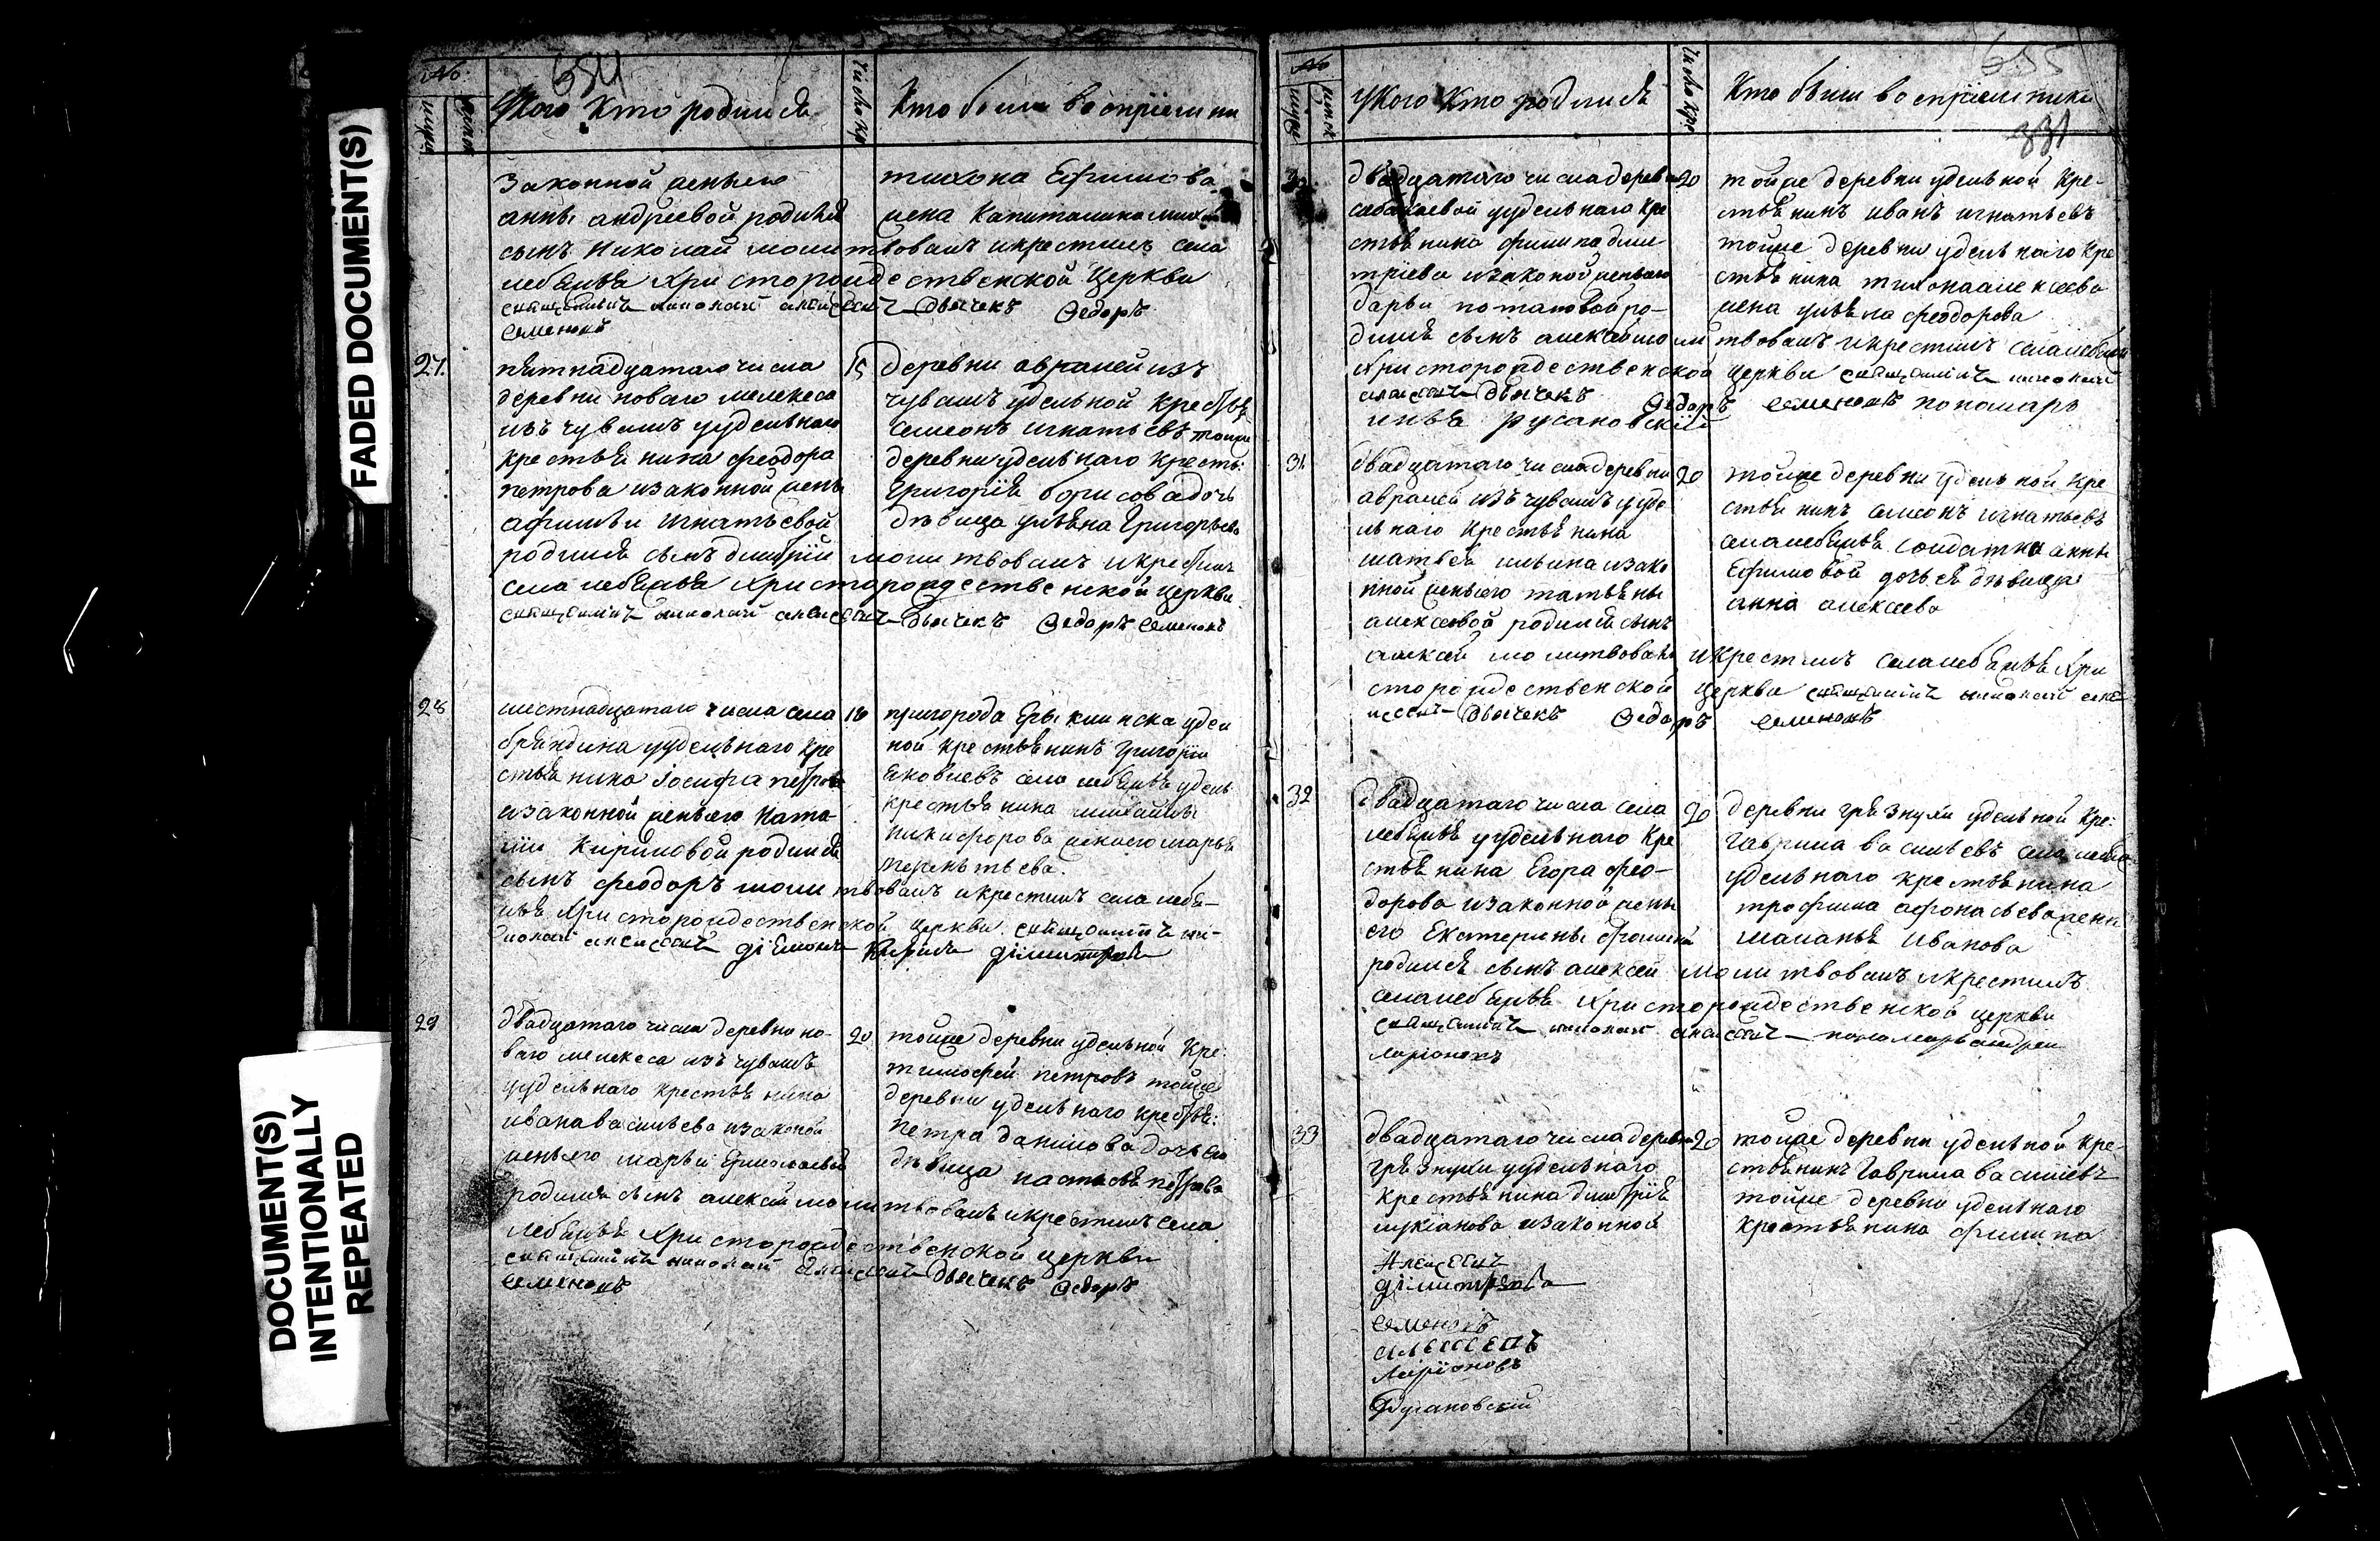 FADED DOCUMENT(S)
DOCUMENT(S)
INTENTIONALLY
REPEATED
№
654
У Кого Кто родился
Число кр
Кто были воспрiемни
законной жены его
анны андреевой родился
сынъ Николай молитвовалъ и крестилъ села
лебяжья Христорождественской Церкви
священникъ николай алексеевъ дьячекъ Ѳедоръ
Семеновъ
тихона Ефимова
жена Капиталина
27.
пятнадцатаго числа
деревни новаго мелекеса
изъ чувашъ у удельнаго
крестьянина феодора
петрова и законной жены
афимьи игнатьевой
родился сынъ димитрiй молитвовалъ и крестилъ
села лебяжья Христорождественской церкви
священникъ николай алексеевъ дьячекъ Ѳедоръ Семеновъ
15
деревни авралей изъ
чувашъ удельной крестья
симеонъ игнатьевъ тойже
деревни удельнаго кресть:
Григорiя борисова дочь
дѣвица ульяна Григорьева
28
шестнадцатаго числа села
бряндина у удельнаго кре
стьянина Iосифа петрова
и законной жены его Ната-
лiи Кириловой родился
сынъ феодоръ молитвовалъ и крестилъ села лебя-
жья Христорождественской церкви священникъ ни-
колай алексеевъ дiяконъ Кирила дiмитрiевъ
16
пригорода Ерыклинска удел
ной крестьянинъ Григорiй
яковлевъ села лебяжья удель
крестьянина михайлы
никифорова жена его марья
терентьева.
29
двадцатаго числа деревни но-
ваго мелекеса изъ чувашъ
у удельнаго крестьянина
ивана васильева и законной
жены его марьи Ермолаевой
родился сынъ алексей молитвовалъ и крестилъ села
лебяжья Христорождественской церкви
священникъ николай алексеевъ дьячекъ Ѳедоръ
Семеновъ
20
тойже деревни удельной Кре:
тимофей петровъ тойже
деревни удельнаго крестья:
петра данилова дочь его
дѣвица настасья петрова
№
655
331
У Кого Кто родился
Число кре
Кто были воспрiемники
двадцатаго числа деревни
сабакаевой у удельнаго кре
стьянина филипа дми-
трiева и законой жены его
дарьи потаповой ро-
дился сынъ алексей молитвовалъ и крестилъ села лебяжья
Христорождественской церкви священникъ николай
алексеевъ дьячекъ Ѳедоръ Семеновъ пономарь
илья русановскiй
20
тойже деревни удельной Кре-
стьянинъ иванъ игнатьевъ
тойже деревни удельнаго кре
стьянина тихона алексеева
жена ульяна феодорова
31
двадцатаго числа деревни
авралей изъ чувашъ у уде
льнаго крестьянина
матвея ильина и зако
нной жены его татьяны
алексеевой родился сынъ
алексей молитвовалъ и крестилъ села лебяжья Хри
сторождественской церкви священникъ николай але
ксеевъ дьячекъ Ѳедоръ Семеновъ
20
тойже деревни удельной Кре
стьянинъ симеонъ игнатьевъ
села лебяжья солдатки анны
Ефимовой дочь ея дѣвица
анна алексеева
32
двадцатаго числа села
лебяжья у удельнаго Кре
стьянина Егора фео-
дорова и законной жены
его Екатерины
родился сынъ алексей молитвовалъ и крестилъ
села лебяжья Христорождественской церкви
священникъ николай алексеевъ пономарь андрей
ларiоновъ
20
деревни грязнухи удельной Кре:
Гаврила васильевъ села лебяж
удельнаго крестьянина
трофима афонасьева жена
маланья Иванова
33
двадцатаго числа деревни
грязнухи у удельнаго
крестьянина димитрiя
лукiанова и законной
20
тойже деревни удельной кре-
стьянинъ Гаврила васильевъ
тойже деревни удельнаго
крестьянина филипа
Алексеевъ
дiмитрiевъ
Семеновъ
алексеевъ
Ларiоновъ
Русановскiй